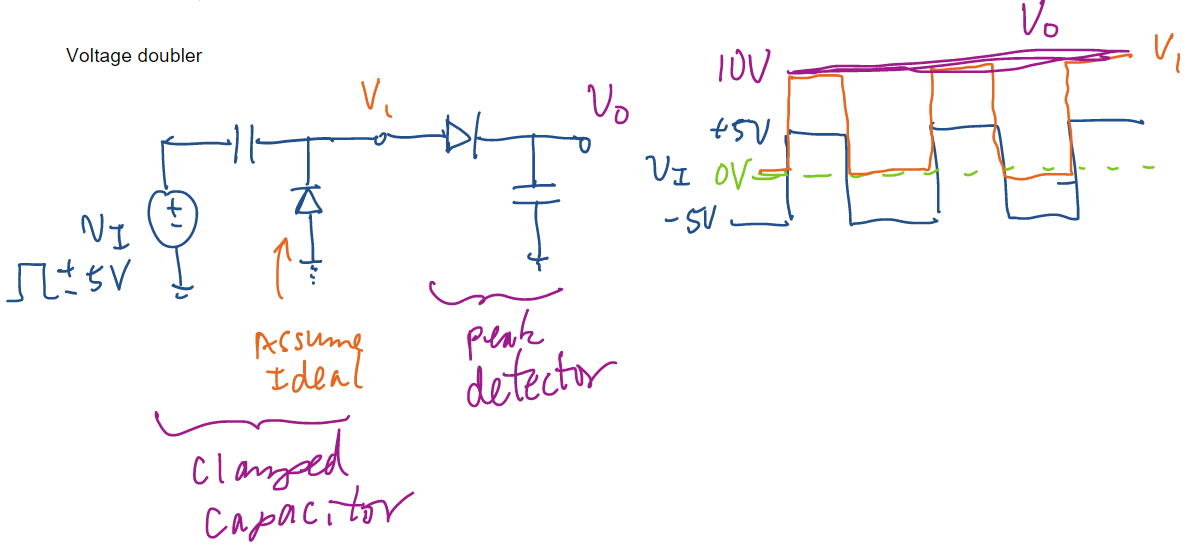 Voltage doubler
V₁
V₀
+
-
V_I
± 5V
Assume
Ideal
peak
detector
Clamped
Capacitor
V₀
V₁
10V
+5V
V_I 0V
-5V